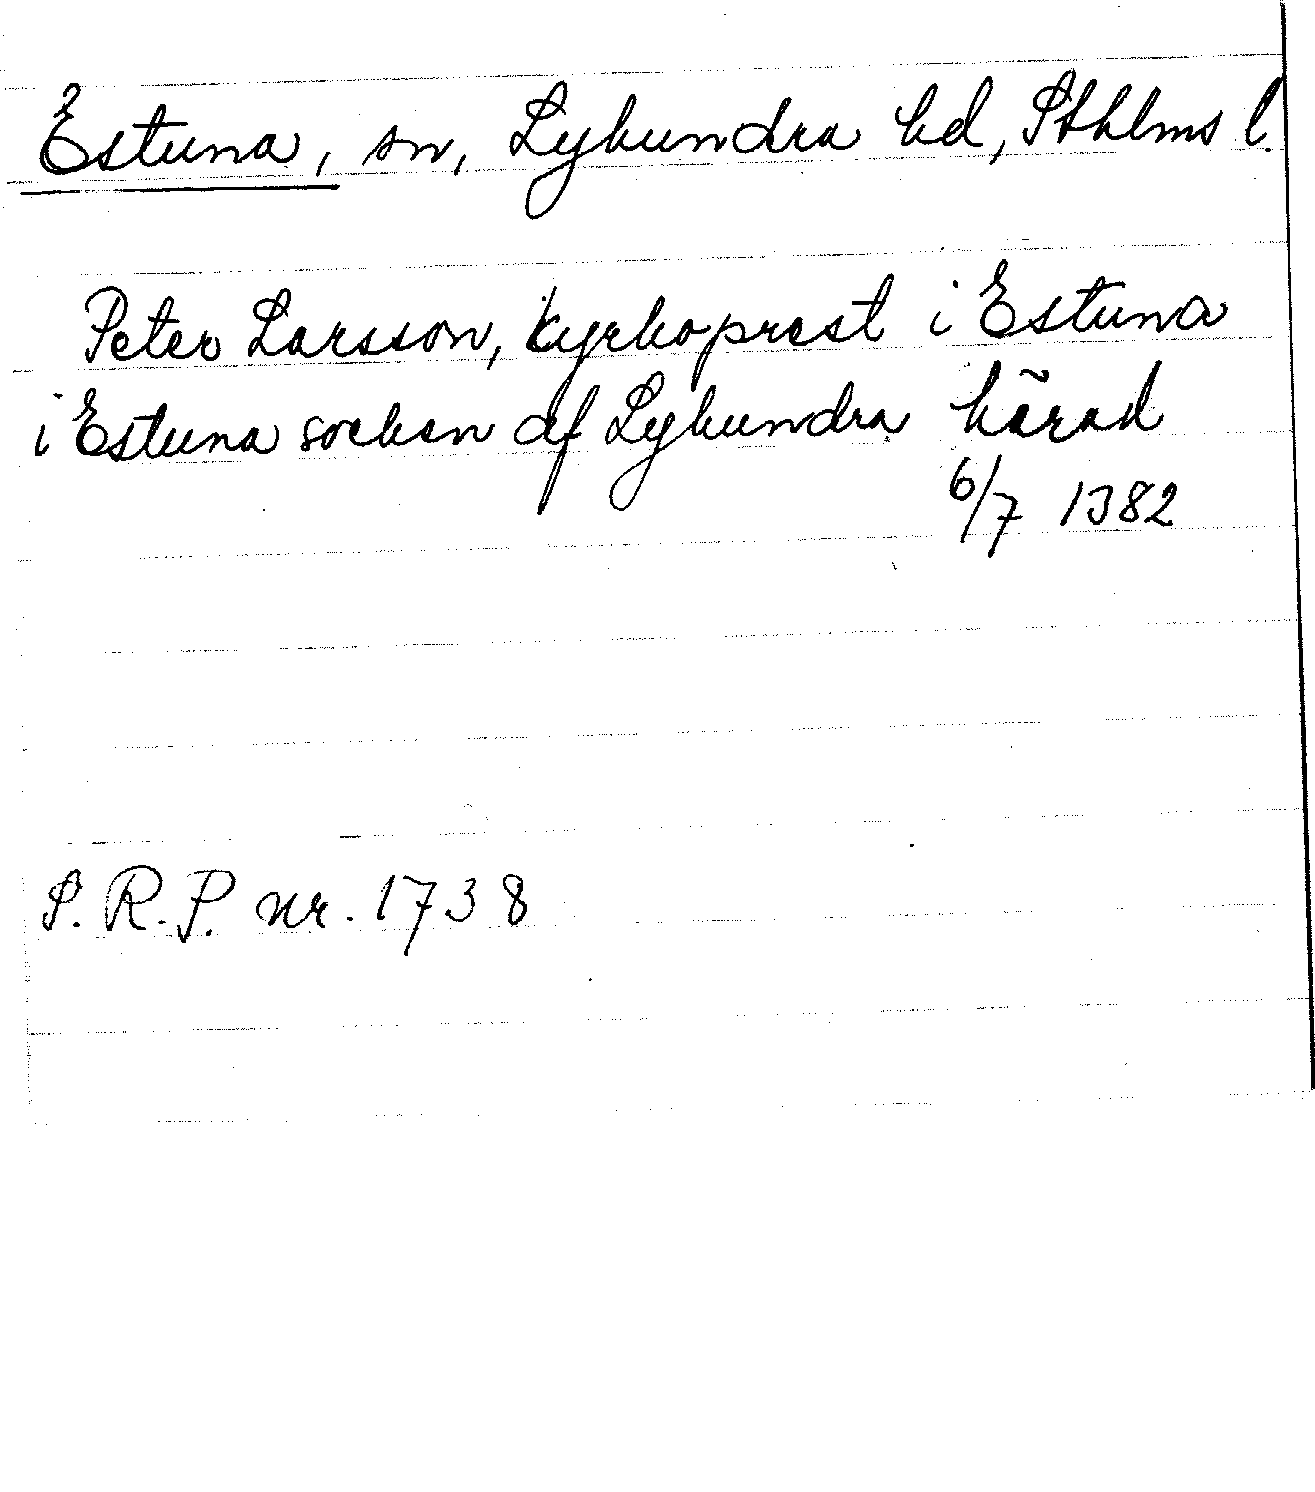 Estuna, sn, Lyhundra hd, Sthlms l.
Peter Larsson, kyrkoprest i Estuna
i Estuna socken af Lyhundra härad
6/7 1382
S. R. P. nr. 1738